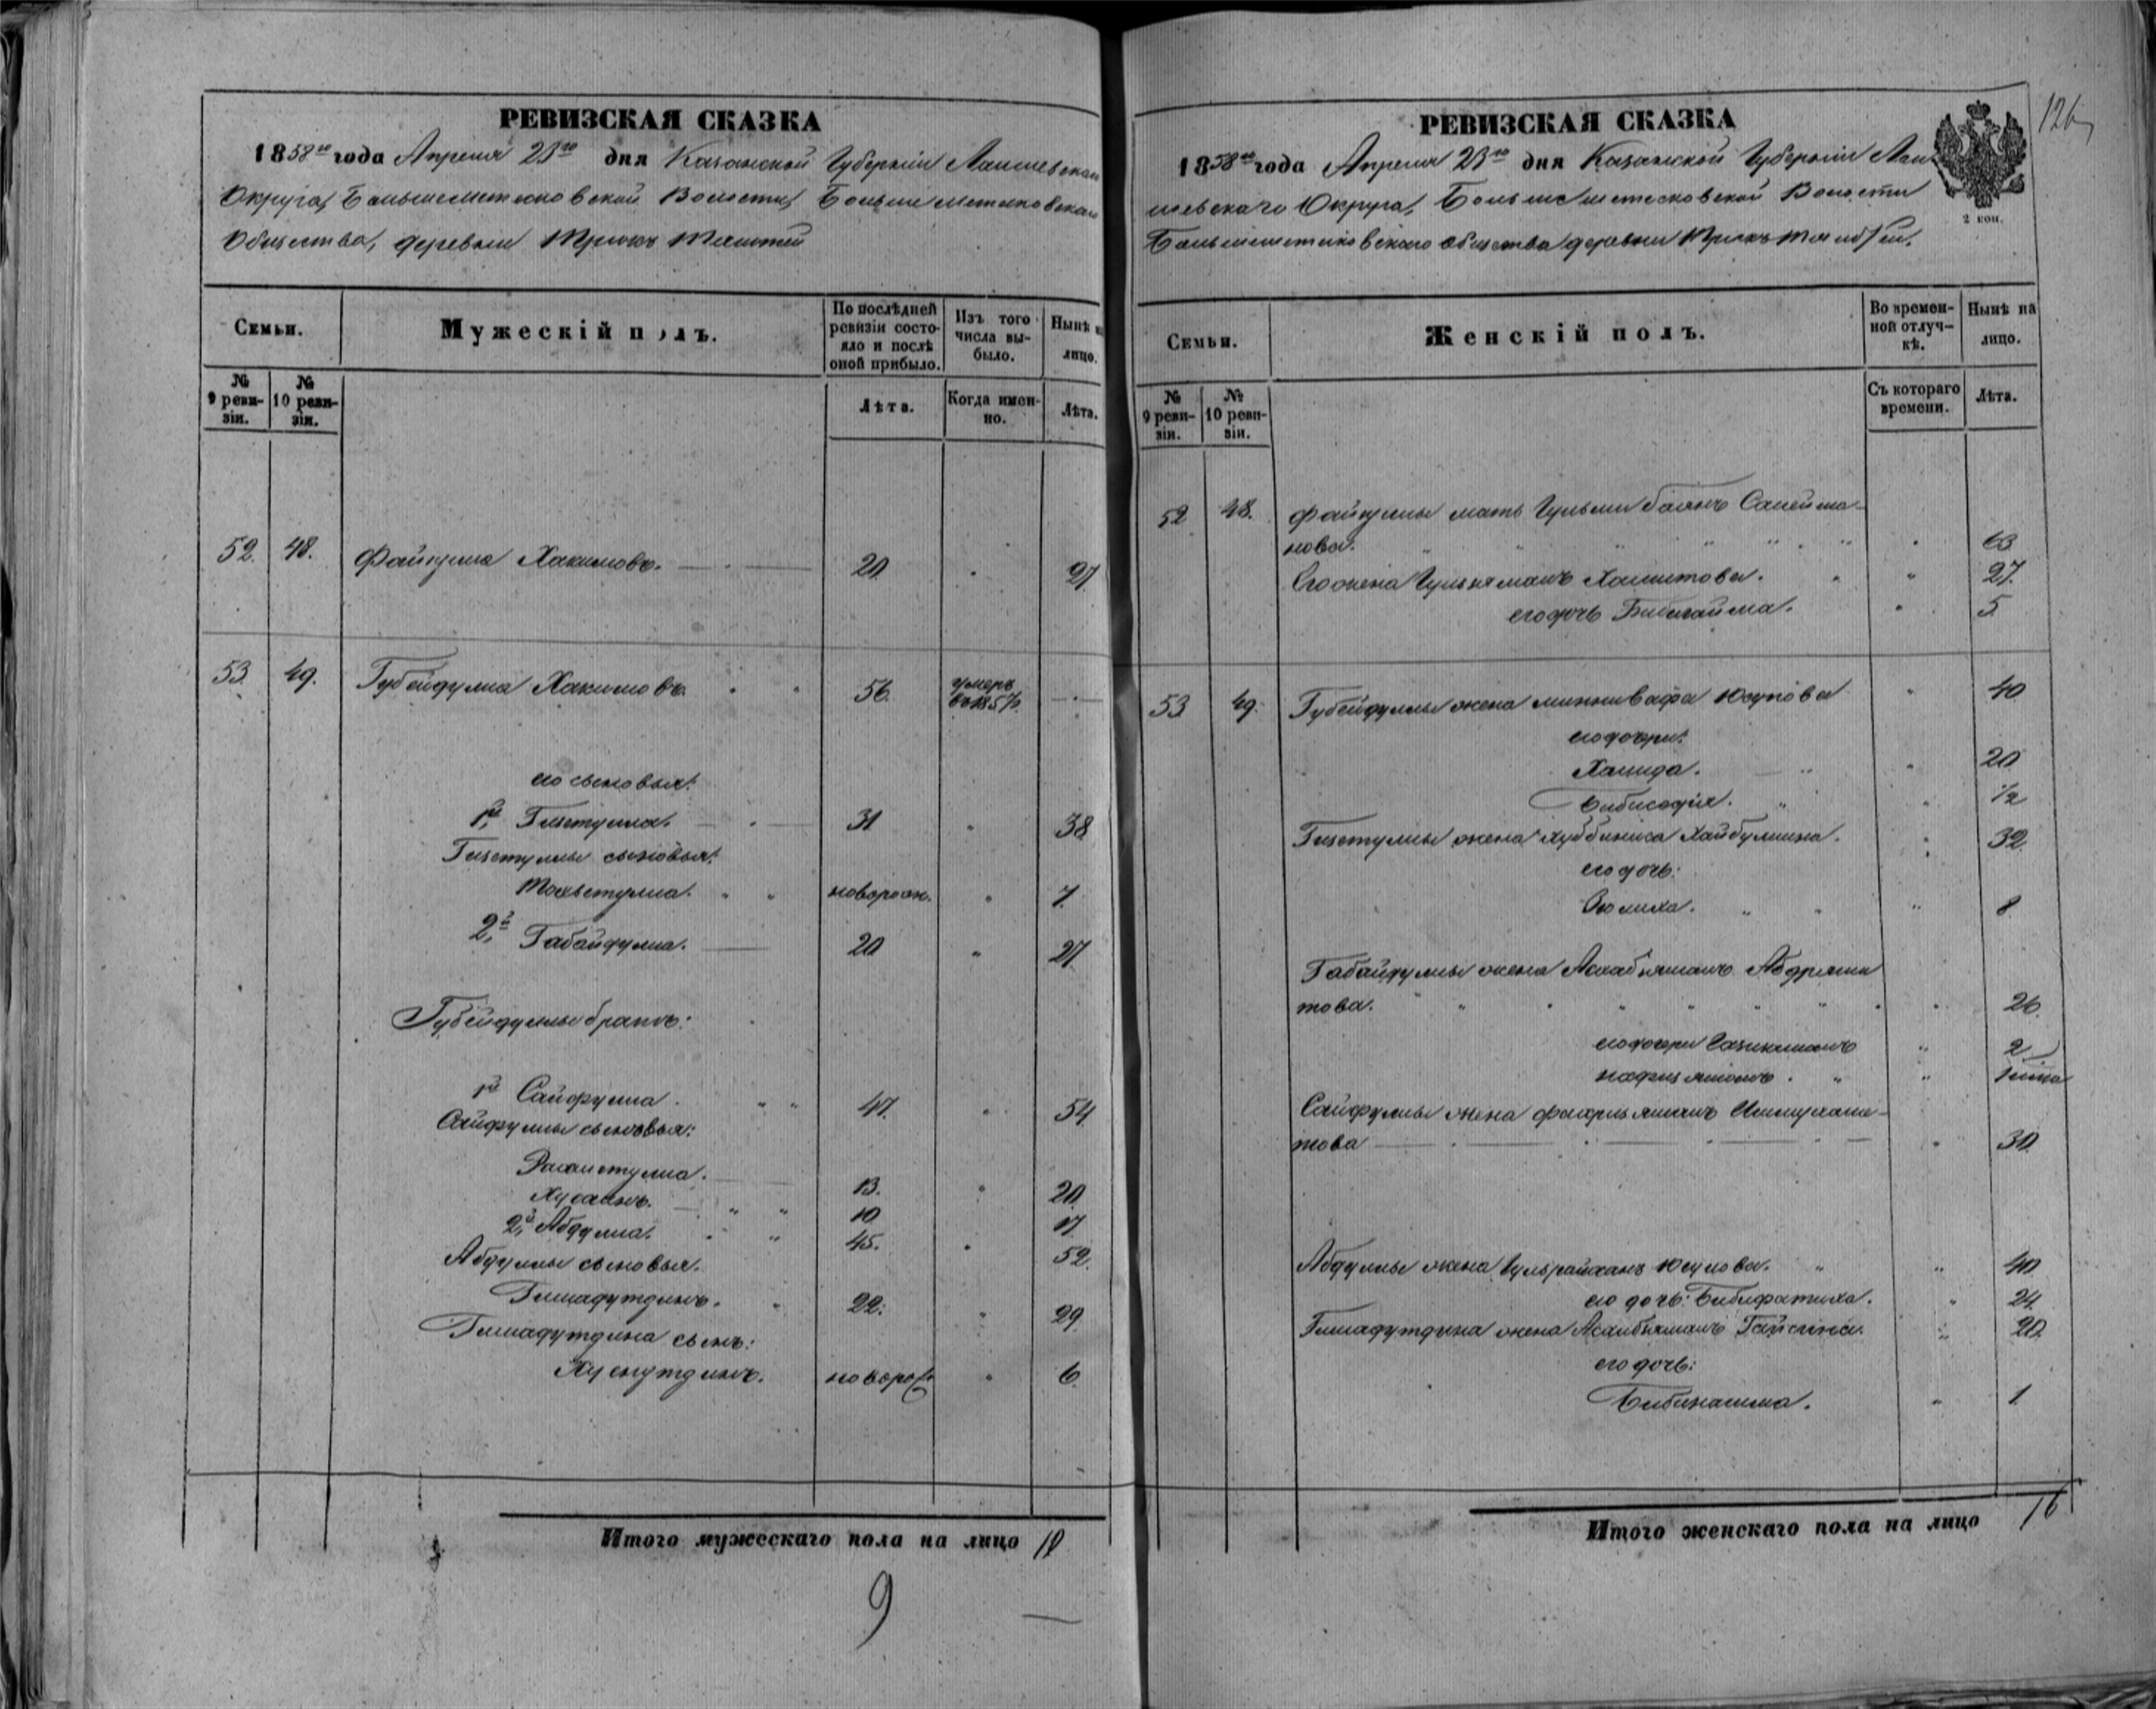 РЕВИЗСКАЯ СКАЗКА
1858го года Апреля 23го дня Казанской Губернии Лаишевскаго
Округа, Большеметесковской Волости, Большеметесковскаго
Общества, деревни Трюкъ Тямтей
Семьи.
Мужескій полъ.
По послѣдней ревизіи состояло и послѣ оной прибыло.
Изъ того числа выбыло.
Нынѣ на лицо.
№ 9 ревизіи.
№ 10 ревизіи.
Лѣта.
Когда именно.
Лѣта.
52. 48. Файзулла Хакимовъ. 20 27
53. 49. Губейдулла Хакимовъ 56. умеръ въ 1857. —
его сыновья:
1й, Гизетулла. 31 38
Гизетуллы сыновья:
новорож. 7.
2й, Габайдулла. 20 27
Губейдуллы братъ:
1й Сайфулла. 47. 54
Сайфуллы сыновья:
Рахметулла. 13. 20
Хусаинъ. 10 17.
2й, Абдулла. 45. 52.
Абдуллы сыновья.
Гимадутдинъ. 22. 29
Гимадутдина сынъ:
Хуснутдинъ. новорож. 6.
Итого мужескаго пола на лицо 10
9
126
РЕВИЗСКАЯ СКАЗКА
1858го года Апреля 23го дня Казанской Губерніи Лаи-
шевскаго Округа, Большеметесковской Волости
Большеметесковскаго общества деревни Трюкъ
2 коп.
Семьи.
Женскій полъ.
Во временной отлучкѣ.
Нынѣ на лицо.
№ 9 ревизіи.
№ 10 ревизіи.
Съ котораго времени.
Лѣта.
52 48. Файзуллы мать Сулейма-
нова. 63
Его жена Гульжямалъ Хамитова. 27.
его дочь 5
53 49. Губейдуллы жена Миннивафа Юсупова 40
его дочери:
Хамида. 20
Бибисафія. 1/2
Гизетуллы жена Хуббиниса Хайбуллина. 32
его дочь:
Зюлиха. 8
Габайдуллы жена Абдряши-
това. 26
его дочери 2
1
Сайфуллы жена Ишмухаме-
това 30
Абдуллы жена Гульрайханъ Юсупова. 40
его дочь: Бибифатиха. 24.
Гимадутдина жена 20.
его дочь:
1.
Итого женскаго пола на лицо 16